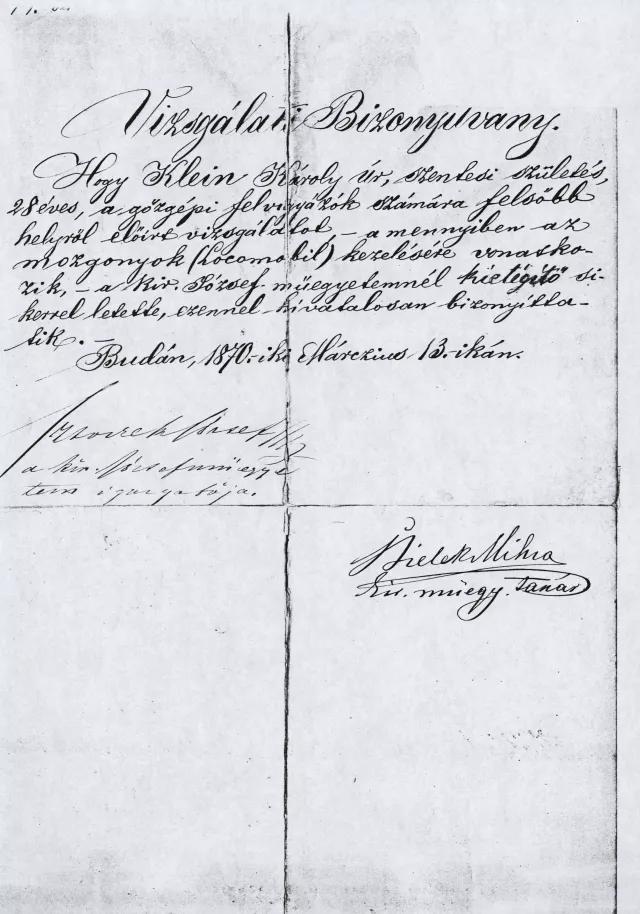 Vizsgálati Bizonyitvany.
Hogy Klein Károly úr, szentesi születés,
28 éves, a gőzgépi felvigyázók számára felsőbb
helyről előirt vizsgálatot, – a mennyiben az
mozgonyok (Locomobil) kezelésére vonatko-
zik, – a kir. József műegyetemnél kielégitő si-
kerrel letette, ezennel hivatalosan bizonyitta-
tik. –
Budán, 1870.-iki Márczius 13.-ikán.
a kir. József műegye
tem igazgatója.
Bielek Miksa
kir. műegy. tanár